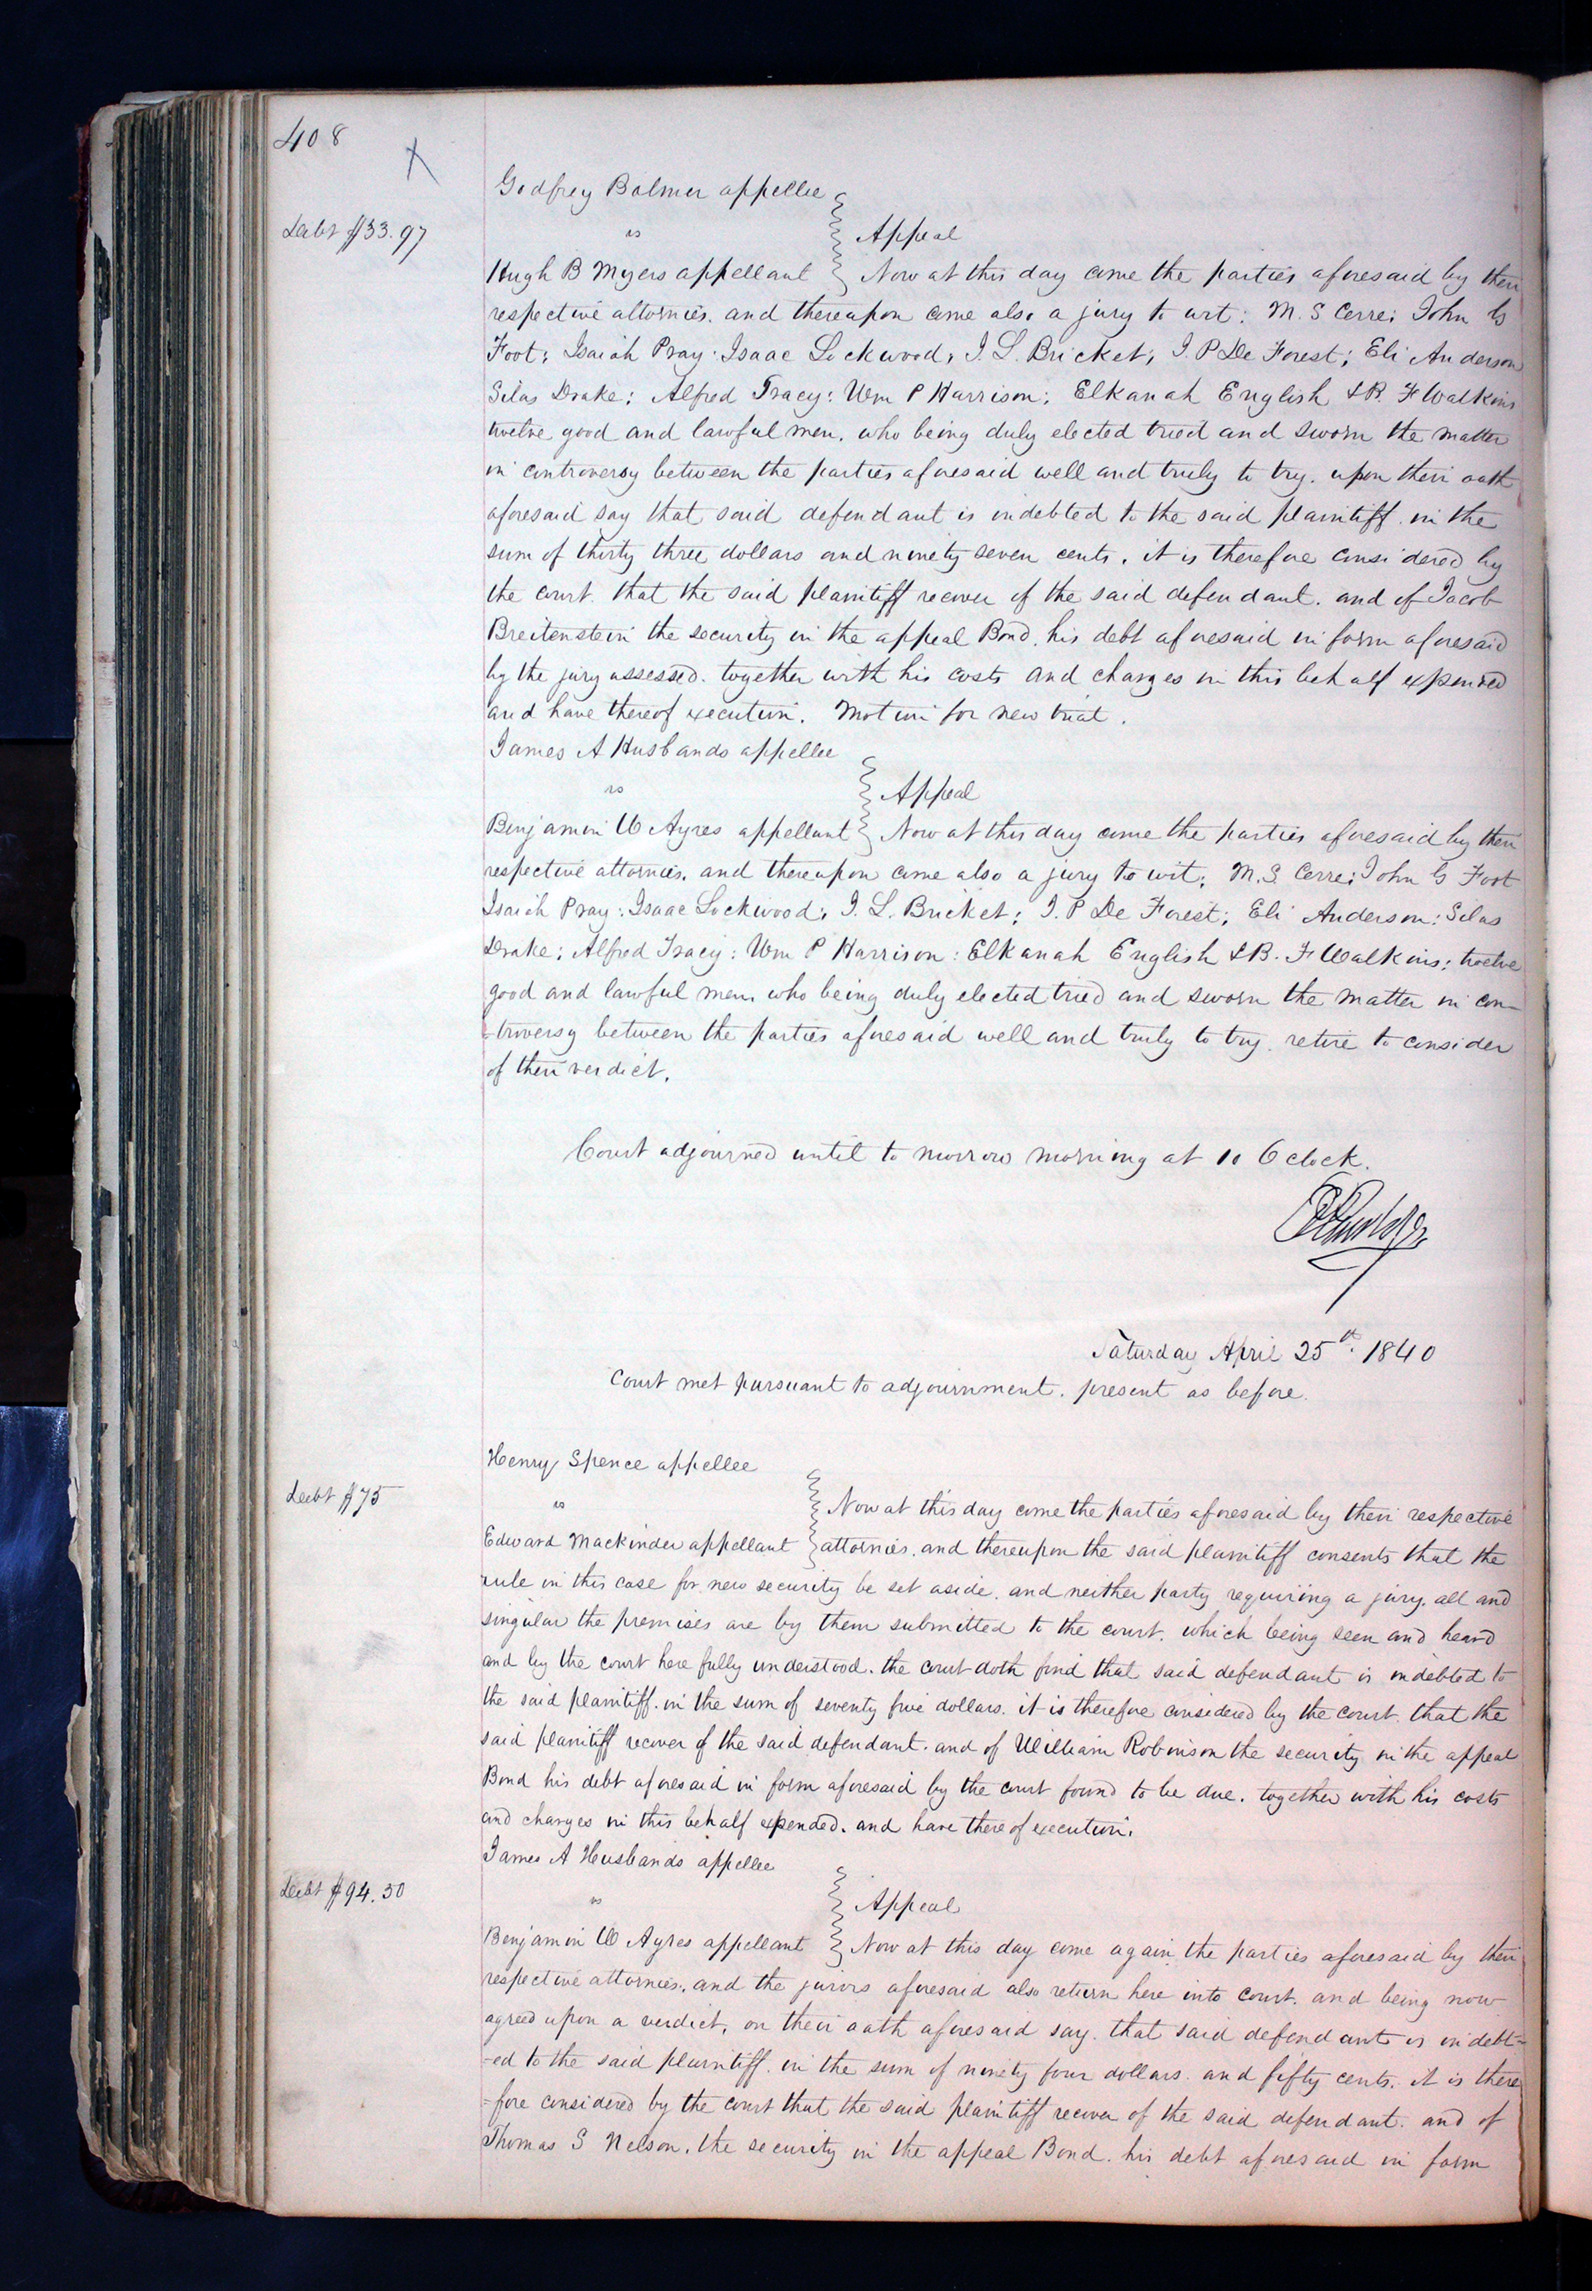 408
X
Godfrey Balmer appellee
Debt $33.97
vs
Appeal
Hugh B Myers appellant Now at this day come the parties aforesaid by their
respective attornies. and thereupon come also a jury to wit: M. S Cerre; John G
Foot; Isaiah Pray: Isaac Lockwood; I. L. Bricket; I. P De Forest; Eli Anderson
Silas Drake; Alfred Tracy: Wm P Harrison; Elkanah English & B. F Walkins
twelve good and lawful men. who being duly elected tried and sworn the matter
in controversy between the parties aforesaid well and truly to try. upon their oath
aforesaid say that said defendant is indebted to the said plaintiff in the
sum of thirty three dollars and ninety seven cents. it is therefore considered by
the court. that the said plaintiff recover of the said defendant. and of Jacob
Breitenstein the security in the appeal Bond. his debt aforesaid in form aforesaid
by the jury assessed. together with his costs and charges in this behalf expended
and have thereof execution. Motion for new trial.
James A Husbands appellee
vs
Appeal
Benjamin W Ayres appellant Now at this day come the parties aforesaid by their
respective attornies. and thereupon came also a jury to wit; M. S. Cerre; John G Foot
Isaiah Pray: Isaac Lockwood; I. L. Bricket; I. P De Forest; Eli Anderson: Silas
Drake; Alfred Tracy: Wm P Harrison: Elkanah English & B. F Walkins; twelve
good and lawful men. who being duly elected tried and sworn the matter in con-
-troversy between the parties aforesaid well and truly to try. retire to consider
of their verdict.
Court adjourned until to morrow morning at 10 O clock.
Saturday April 25th. 1840
Court met pursuant to adjournment. present as before.
Henry Spence appellee
Debt $75
vs
Now at this day come the parties aforesaid by their respective
Edward Mackinder appellant attornies. and thereupon the said plaintiff consents that the
rule in this case for new security be set aside. and neither party requiring a jury. all and
singular the premises are by them submitted to the court. which being seen and heard
and by the court here fully understood. the court doth find that said defendant is indebted to
the said plaintiff. in the sum of seventy five dollars. it is therefore considered by the court. that the
said plaintiff recover of the said defendant. and of William Robinson the security in the appeal
Bond his debt aforesaid in form aforesaid by the court found to be due. together with his costs
and charges in this behalf expended. and have thereof execution.
James A Husbands appellee
Debt $94.50
vs
Appeal
Benjamin W Ayres appellant Now at this day come again the parties aforesaid by their
respective attornies. and the jurors aforesaid also return here into court. and being now
agreed upon a verdict, on their oath aforesaid say. that said defendant is indebt-
-ed to the said plaintiff. in the sum of ninety four dollars. and fifty cents. it is there
-fore considered by the court that the said plaintiff recover of the said defendant. and of
Thomas S Nelson. the security in the appeal Bond. his debt aforesaid in form